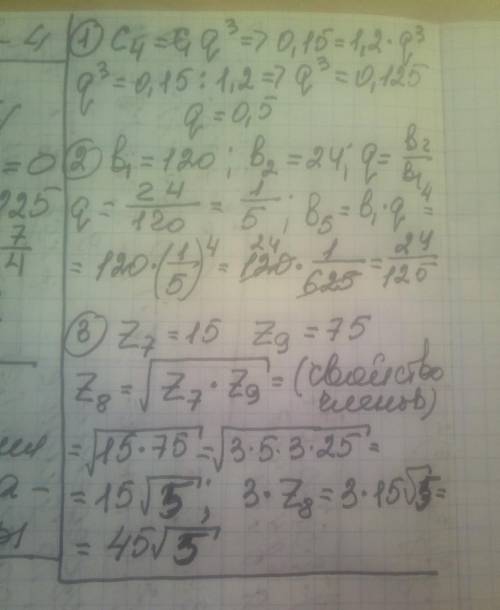 - 4
= 0
225
7
4
① C₄ = C₁ q³ => 0,15 = 1,2 · q³
q³ = 0,15 : 1,2 => q³ = 0,125
q = 0,5
② b₁ = 120 ; b₂ = 24 ; q = b₂/b₁
q = 24/120 = 1/5 ; b₅ = b₁ · q⁴ =
= 120 · (1/5)⁴ = 120 24 · 1/625 = 24/125
③ Z₇ = 15 Z₉ = 75
Z₈ = √(Z₇ · Z₉) = (свойство
членов)
= √(15 · 75) = √(3 · 5 · 3 · 25) =
= 15√5 ; 3 · Z₈ = 3 · 15√5 =
= 45√5